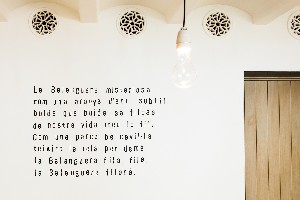 La Balanguera misteriosa
com una aranya d'art subtil
buida que buida sa filosa
de nostra vida treu lo fil.
Com una parca be cavil·la
teixint la tela per demà
la Balanguera fila fila
la Balanguera filarà.